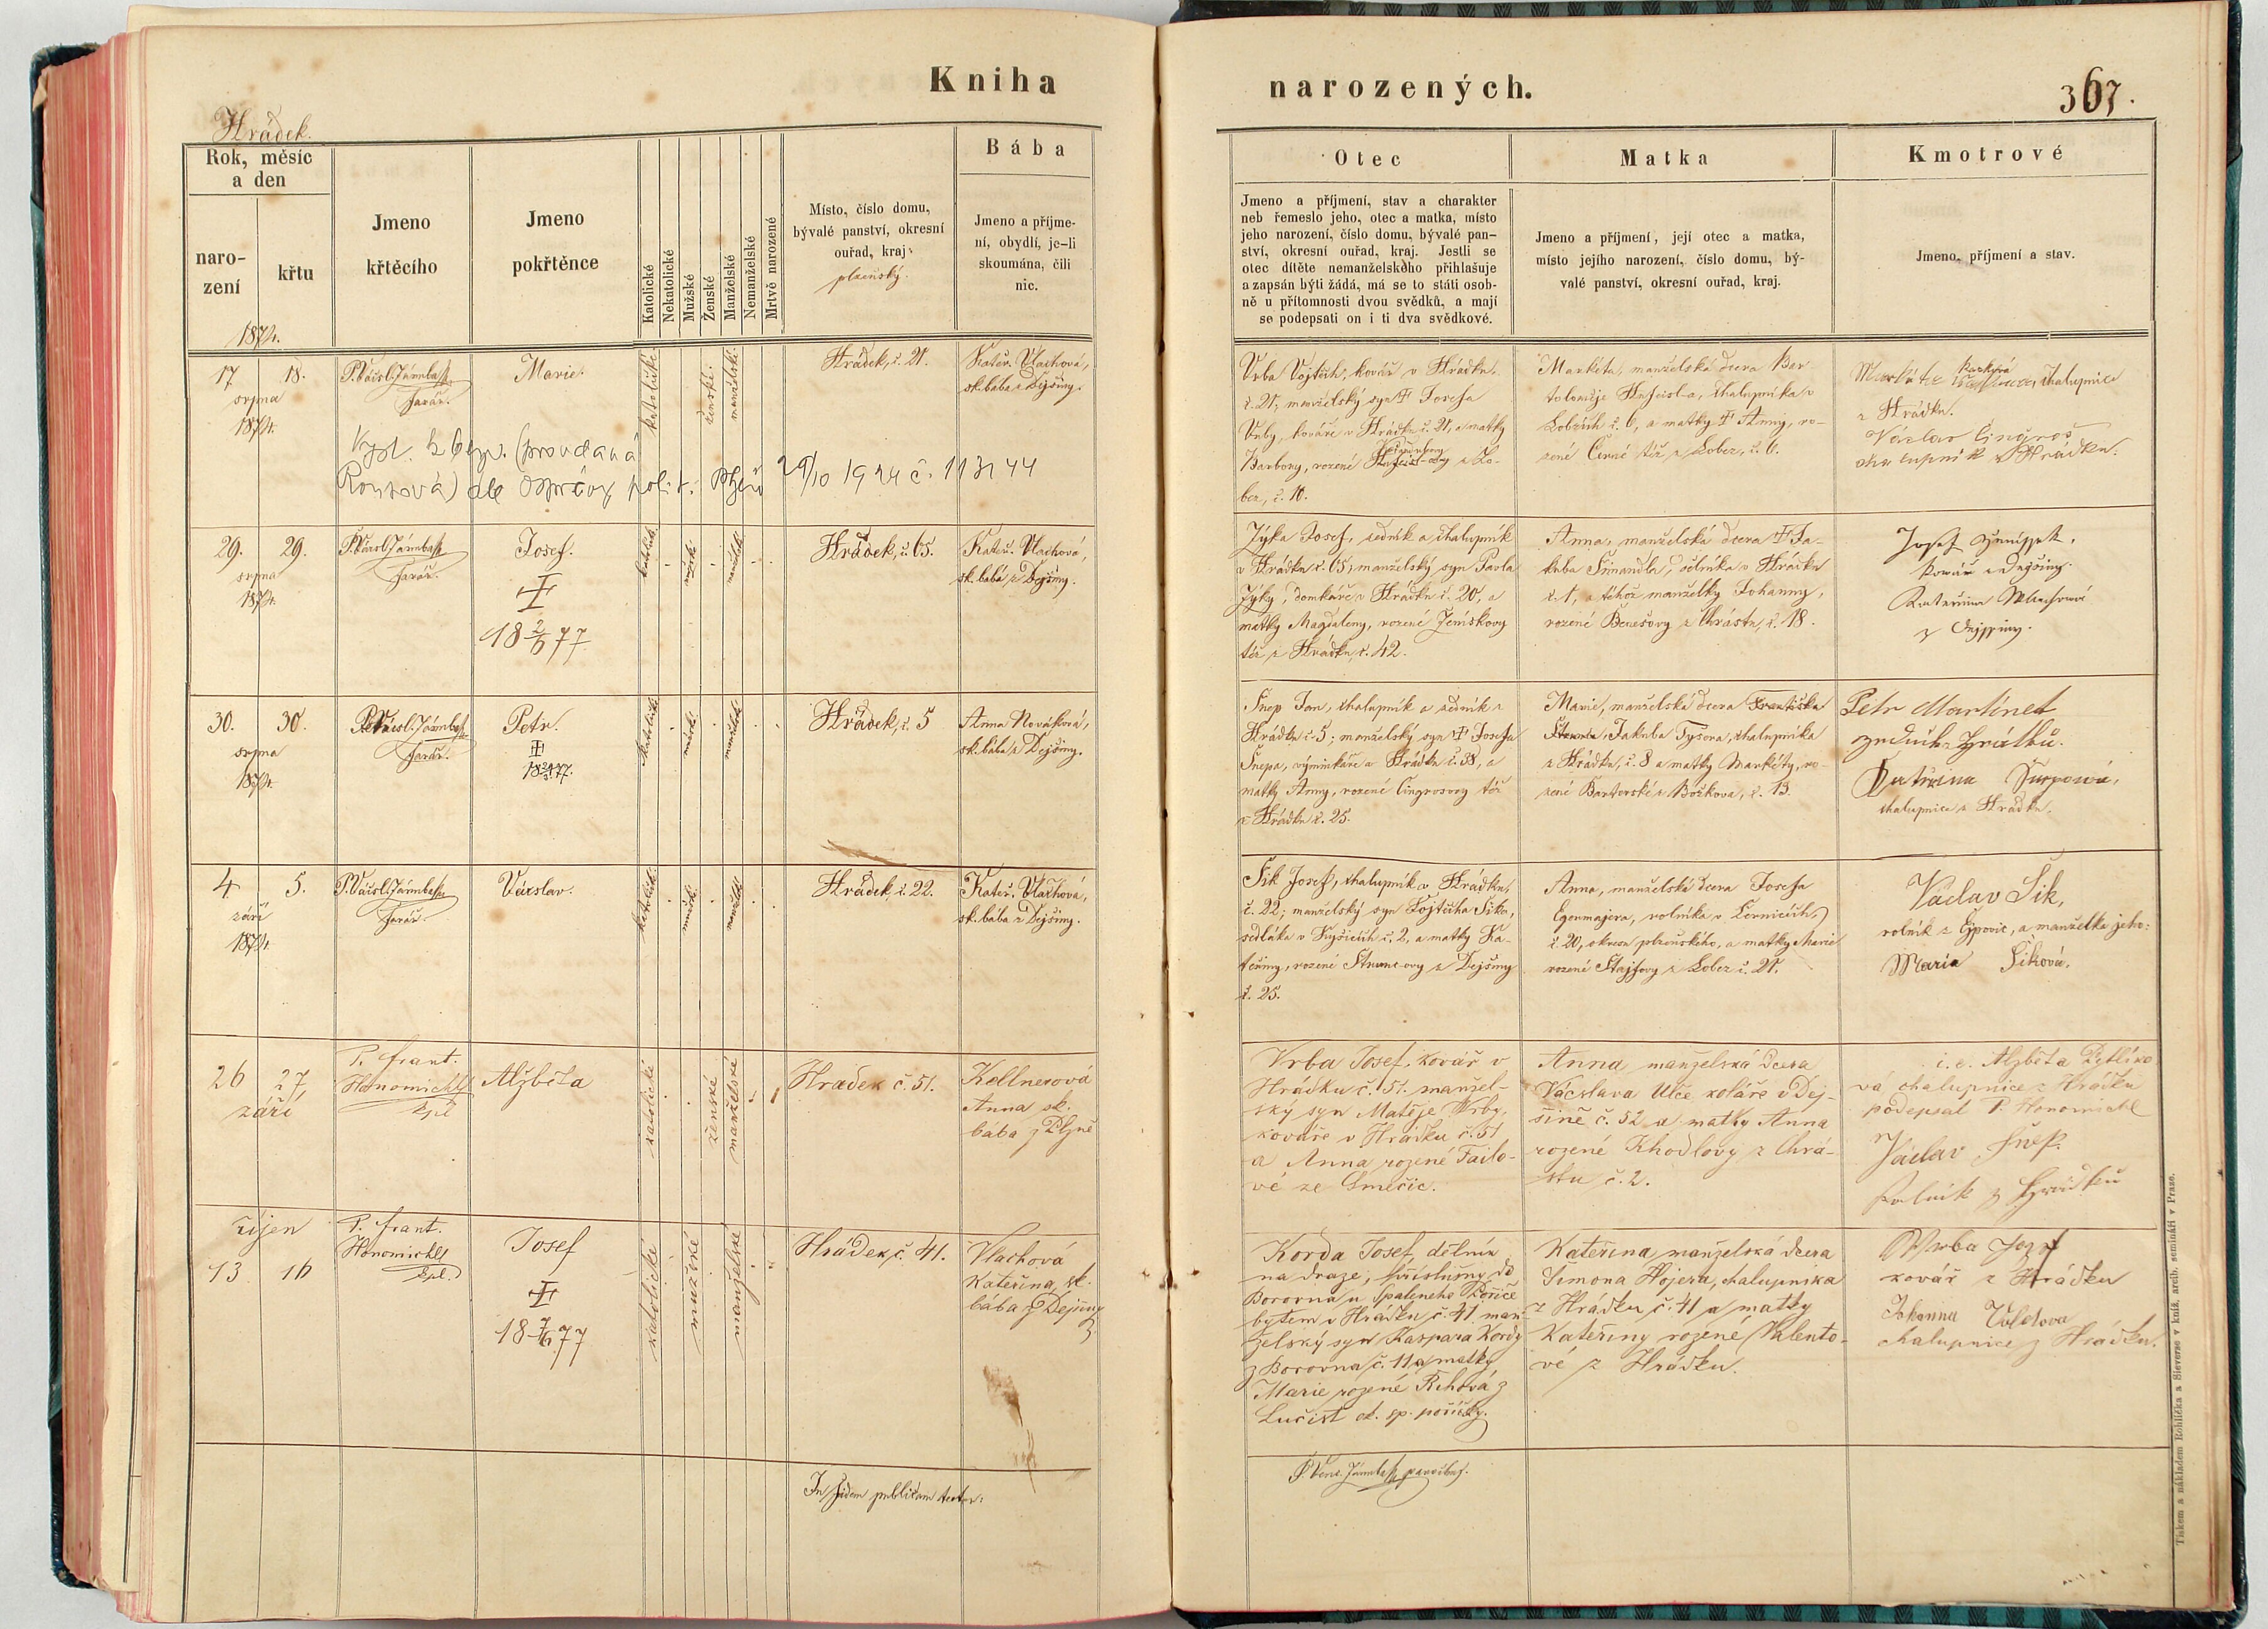 Kniha
narozených.
367.
Hrádek.
Rok, měsíc
a den
naro-
zení
křtu
1874.
Jmeno
křtěcího
Jmeno
pokřtěnce
Katolické
Nekatolické
Mužské
Ženské
Manželské
Nemanželské
Mrtvě narozené
Místo, číslo domu,
bývalé panství, okresní
ouřad, kraj:
plzeňský.
Bába
Jmeno a příjme-
ní, obydlí, je-li
skoumána, čili
nic.
Otec
Jmeno a příjmení, stav a charakter
neb řemeslo jeho, otec a matka, místo
jeho narození, číslo domu, bývalé pan-
ství, okresní ouřad, kraj. Jestli se
otec dítěte nemanželského přihlašuje
a zapsán býti žádá, má se to státi osob-
ně u přítomnosti dvou svědků, a mají
se podepsati on i ti dva svědkové.
Matka
Jmeno a příjmení, její otec a matka,
místo jejího narození, číslo domu, bý-
valé panství, okresní ouřad, kraj.
Kmotrové
Jmeno, příjmení a stav.
17 18.
srpna
1874.
farář.
Marie.
katolické
ženské.
manželské.
Hrádek, č. 21.
Kateř. Vlachová,
sk. bába z Dejšiny.
Vrba Vojtěch, kovář v Hrádku,
č. 21; manželský syn Josefa
Vrby, kováře v Hrádku č. 21, a matky
Barbory, rozené
bez, č. 10.
Markéta, manželská dcera Bar
toloměje chalupníka v
Lobzích č. 6, a matky Anny, ro-
zené Černé též z Lobez, č. 6.
Markéta chalupnice
z Hrádku.
Václav Cingroš
chalupník v Hrádku.
29. 29.
srpna
1874.
farář.
Josef.
18 2/6 77
Hrádek, č. 65.
Kateř. Vlachová,
sk. bába z Dejšiny.
Jýka Josef, zedník a chalupník
v Hrádku č. 65; manželský syn Pavla
Jýky, domkáře v Hrádku č. 20, a
matky Magdaleny, rozené Zemiskovy
též z Hrádku, č. 42.
Anna, manželská dcera Ja-
kuba Šimandla, rolníka v Hrádku
č. 1, a téhož manželky Johanny,
rozené Benešovy z Chrástu, č. 18.
Josef
kovář z Dejšiny.
Kateřina Vlachová
z Dejšiny.
30. 30.
srpna
1874.
farář.
Petr.
Hrádek, č. 5
Anna Nováková,
sk. bába z Dejšiny.
Šnep Jan, chalupník a zedník z
Hrádku č. 5; manželský syn Josefa
Šnepa, výminkáře v Hrádku č. 38, a
matky Anny, rozené Cingrosovy též
z Hrádku č. 25.
Marie, manželská dcera Františka
Jakuba Tysera, chalupníka
z Hrádku, č. 8 a matky Markéty, ro-
zené Bartovské z Božkova, č. 13.
Petr Martínet
zedník z Hrátku.
chalupnice z Hrádku.
4 5.
září
1874.
farář.
Václav.
Hrádek, č. 22.
Kateř. Vlachová,
sk. bába z Dejšiny.
Šik Josef, chalupník v Hrádku,
č. 22; manželský syn Vojtěcha Šika,
sedláka v Kyšicích č. 2, a matky Ka-
teřiny, rozené Strunc-ovy z Dejšiny
č. 25.
Anna, manželská dcera Josefa
Egermajera, rolníka v Černicích,
č. 20, okresu plzeňského, a matky Marie
rozené Štajfovy z Lobez č. 21.
Václav Šik,
rolník z Ejpovic, a manželka jeho:
Maria Šiková.
26 27
září
P. Frant.
Honomichl
kpl
Alžběta
katolické
ženské
manželské
Hradek č. 51.
Kellnerová
Anna sk.
bába z Plzně
Vrba Josef, kovář v
Hrádku č. 51. manžel-
ský syn Matěje Vrby,
kováře v Hrádku č. 51
a Anna rozené Failo-
vé ze Smečic.
Anna manželská dcera
Václava Ulče koláře v Dej-
šině č. 52 a matky Anna
rozené Khodlovy z Chrá-
stu č. 2.
i. e. Alžběta
vá chalupnice z Hrádku
podepsal P. Honomichl
Václav Šnep.
Rolník z Hrádku
říjen
13 16
P. Frant.
Honomichl
kpl.
Josef
18 7/6 77
katolické
mužské
manželské
Hrádek č. 41.
Vlachová
Kateřina, sk.
bába z Dejšiny
Korda Josef, dělník
na draze, příslušný do
Borovna u Spáleného Poříče
bytem v Hrádku č. 41 man-
želský syn Kaspara Kordy
z Borovna č. 11 a matky
Marie rozené Řihová z
Lučišť ok. sp. poříčky.
Kateřina, manželská dcera
Šimona Hojera, chalupníka
z Hrádku č. 41 a matky
Kateřiny rozené Valento-
vé z Hrádku.
Wrba Jozef
kovář z Hrádku
Johanna
chalupnice z Hrádku.
In fidem publicam testor:
Tiskem a nákladem Rohlíčka a Sieverse v kníž. arcib. semináři v Praze.